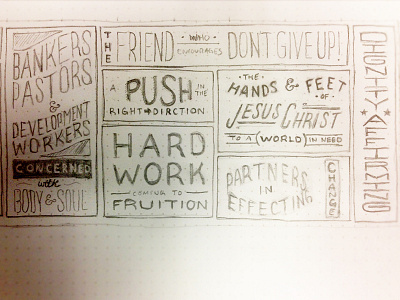 BANKERS
PASTORS
&
DEVELOPMENT
WORKERS
CONCERNED
with
BODY & SOUL
THE
FRIEND
WHO
ENCOURAGES
DON'T GIVE UP!
A PUSH IN THE
RIGHT DIRCTION
HARD
WORK
COMING TO
FRUITION
THE
HANDS & FEET
OF
JESUS CHRIST
TO A (WORLD) IN NEED
PARTNERS
IN
EFFECTING
CHANGE
DIGNITY AFFIRMING